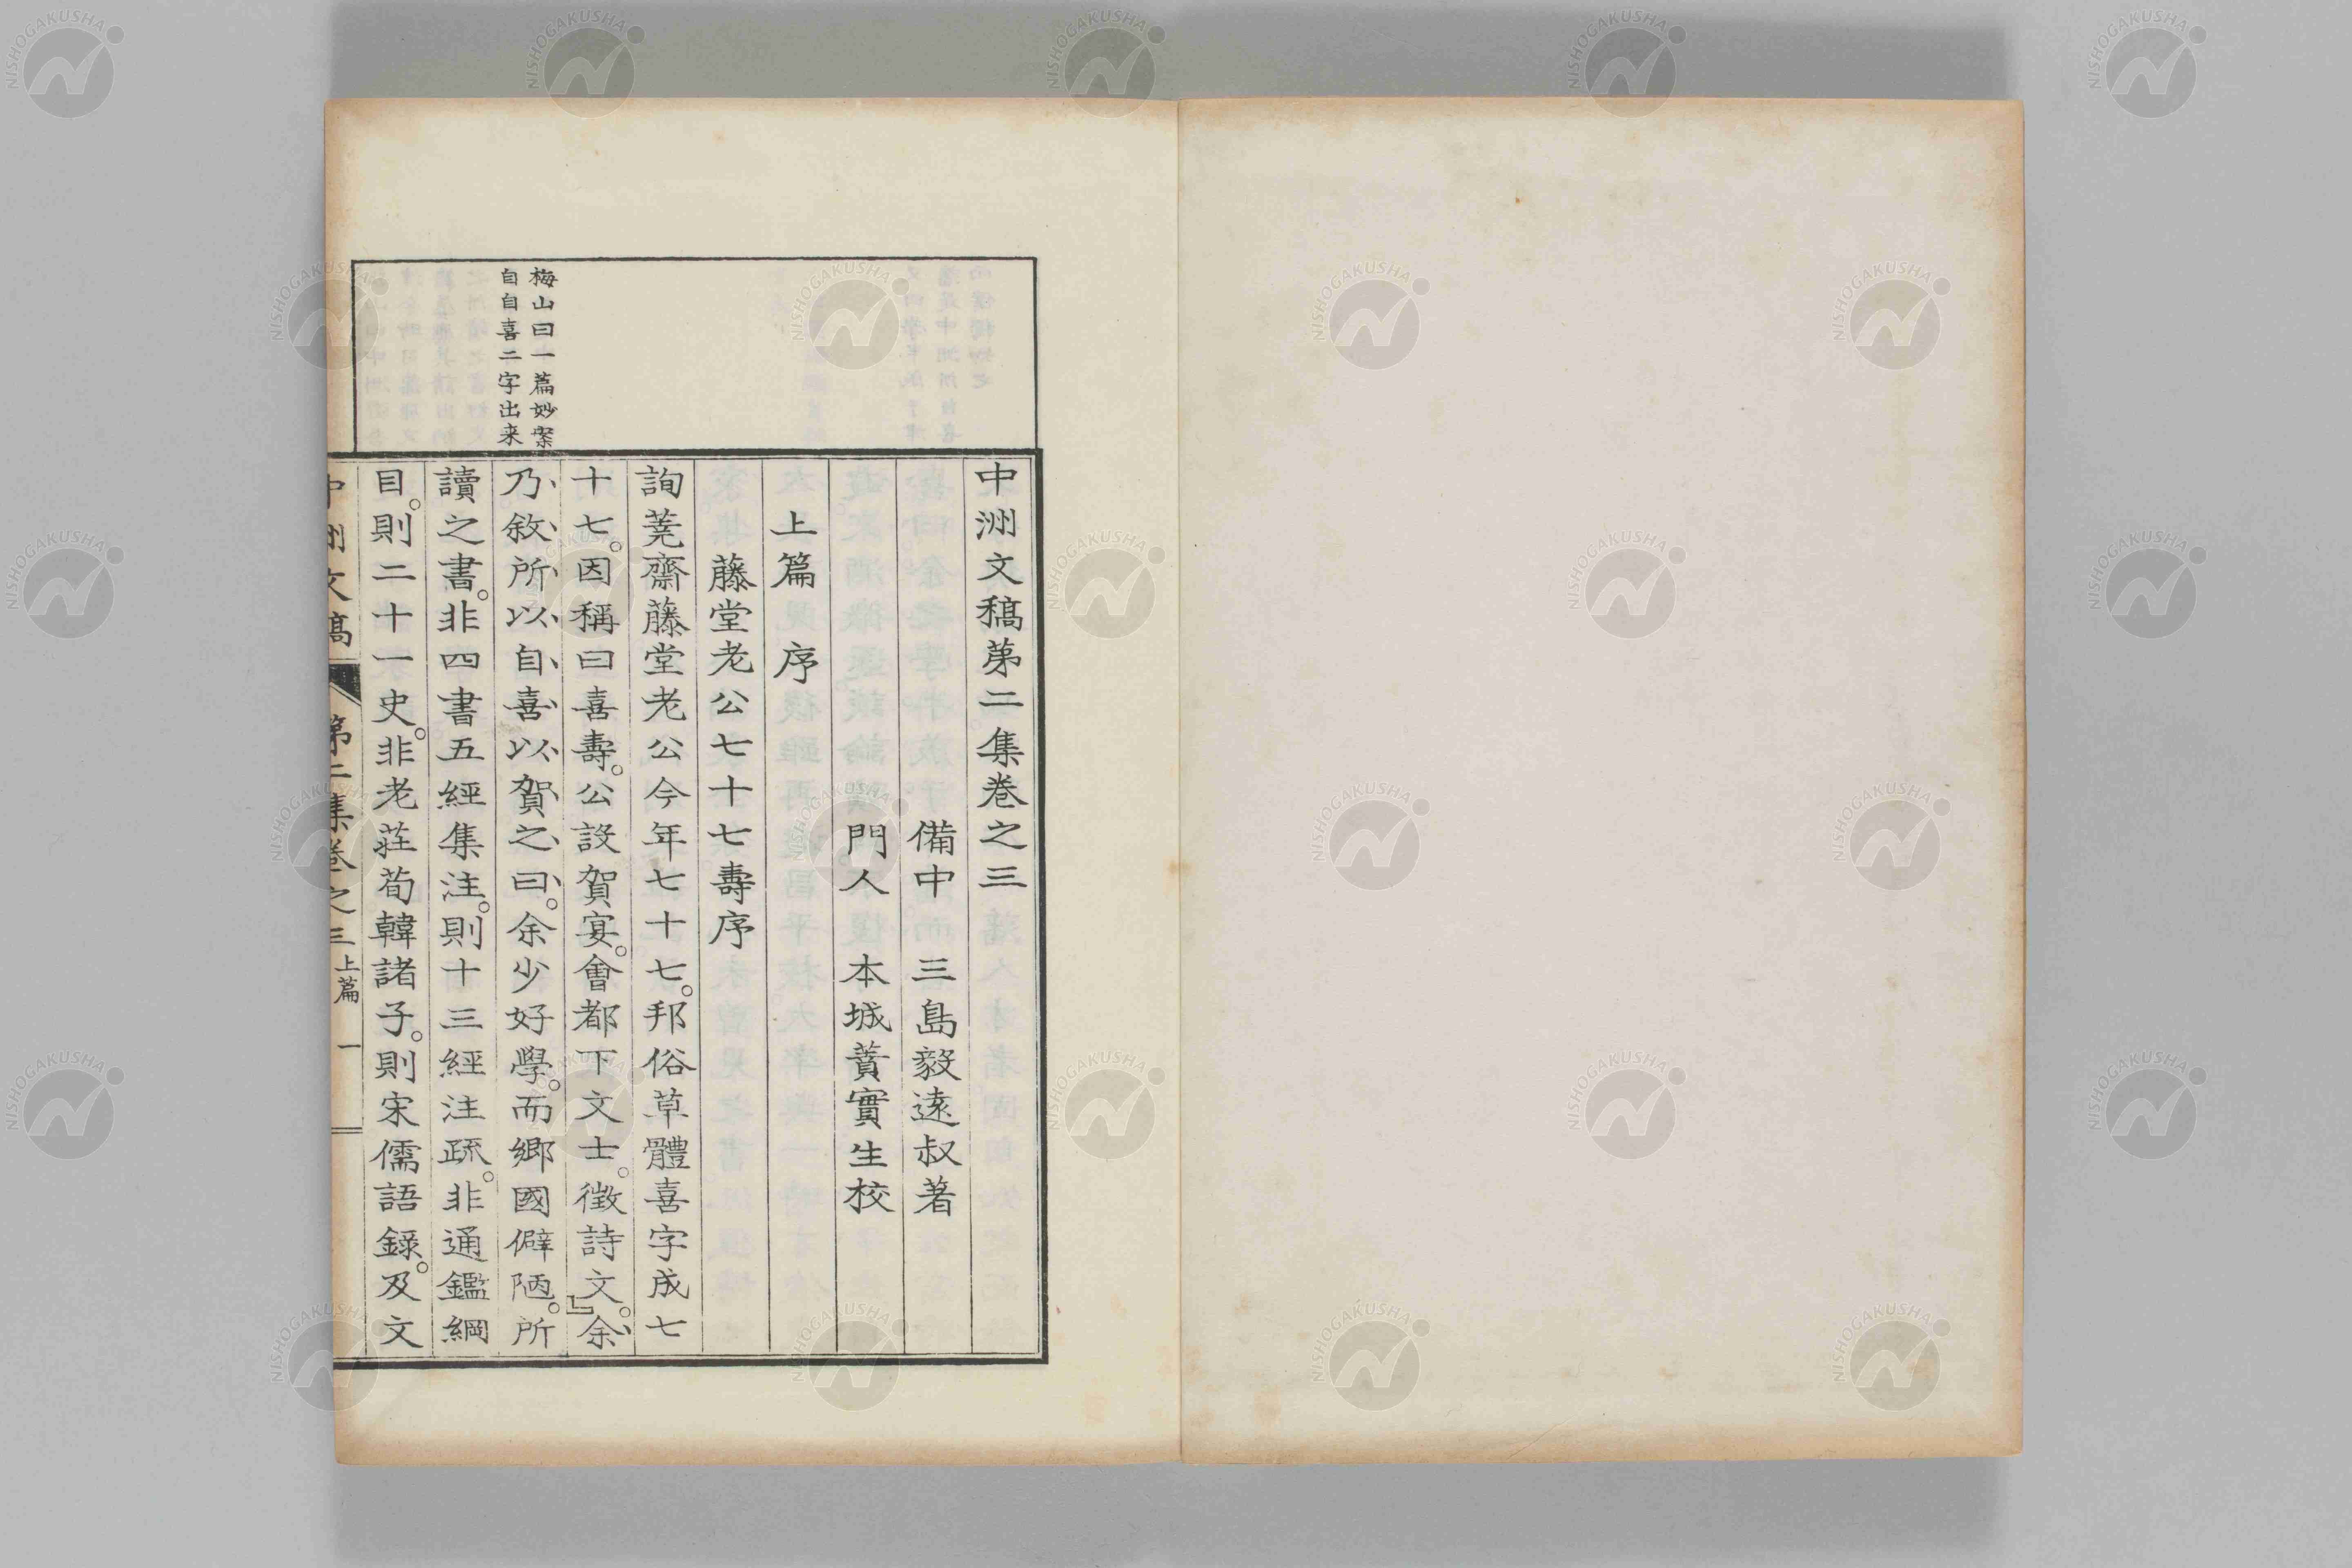 中洲文稿第二集卷之三
備中　三島毅遠叔著
門人　本城蕡實生校
上篇　序
藤堂老公七十七壽序
詢蕘齋藤堂老公今年七十七。邦俗草體喜字成七
十七。因稱曰喜壽。公設賀宴。會都下文士。徵詩文。余
乃敘所以自喜以賀之曰。余少好學。而鄉國僻陋。所
讀之書。非四書五經集注。則十三經注疏。非通鑑綱
目。則二十一史。非老莊荀韓諸子。則宋儒語錄。及文
梅山曰一篇妙案
自自喜二字出来
中洲文稿　第二集卷之三　上篇　一
NISHOGAKUSHA